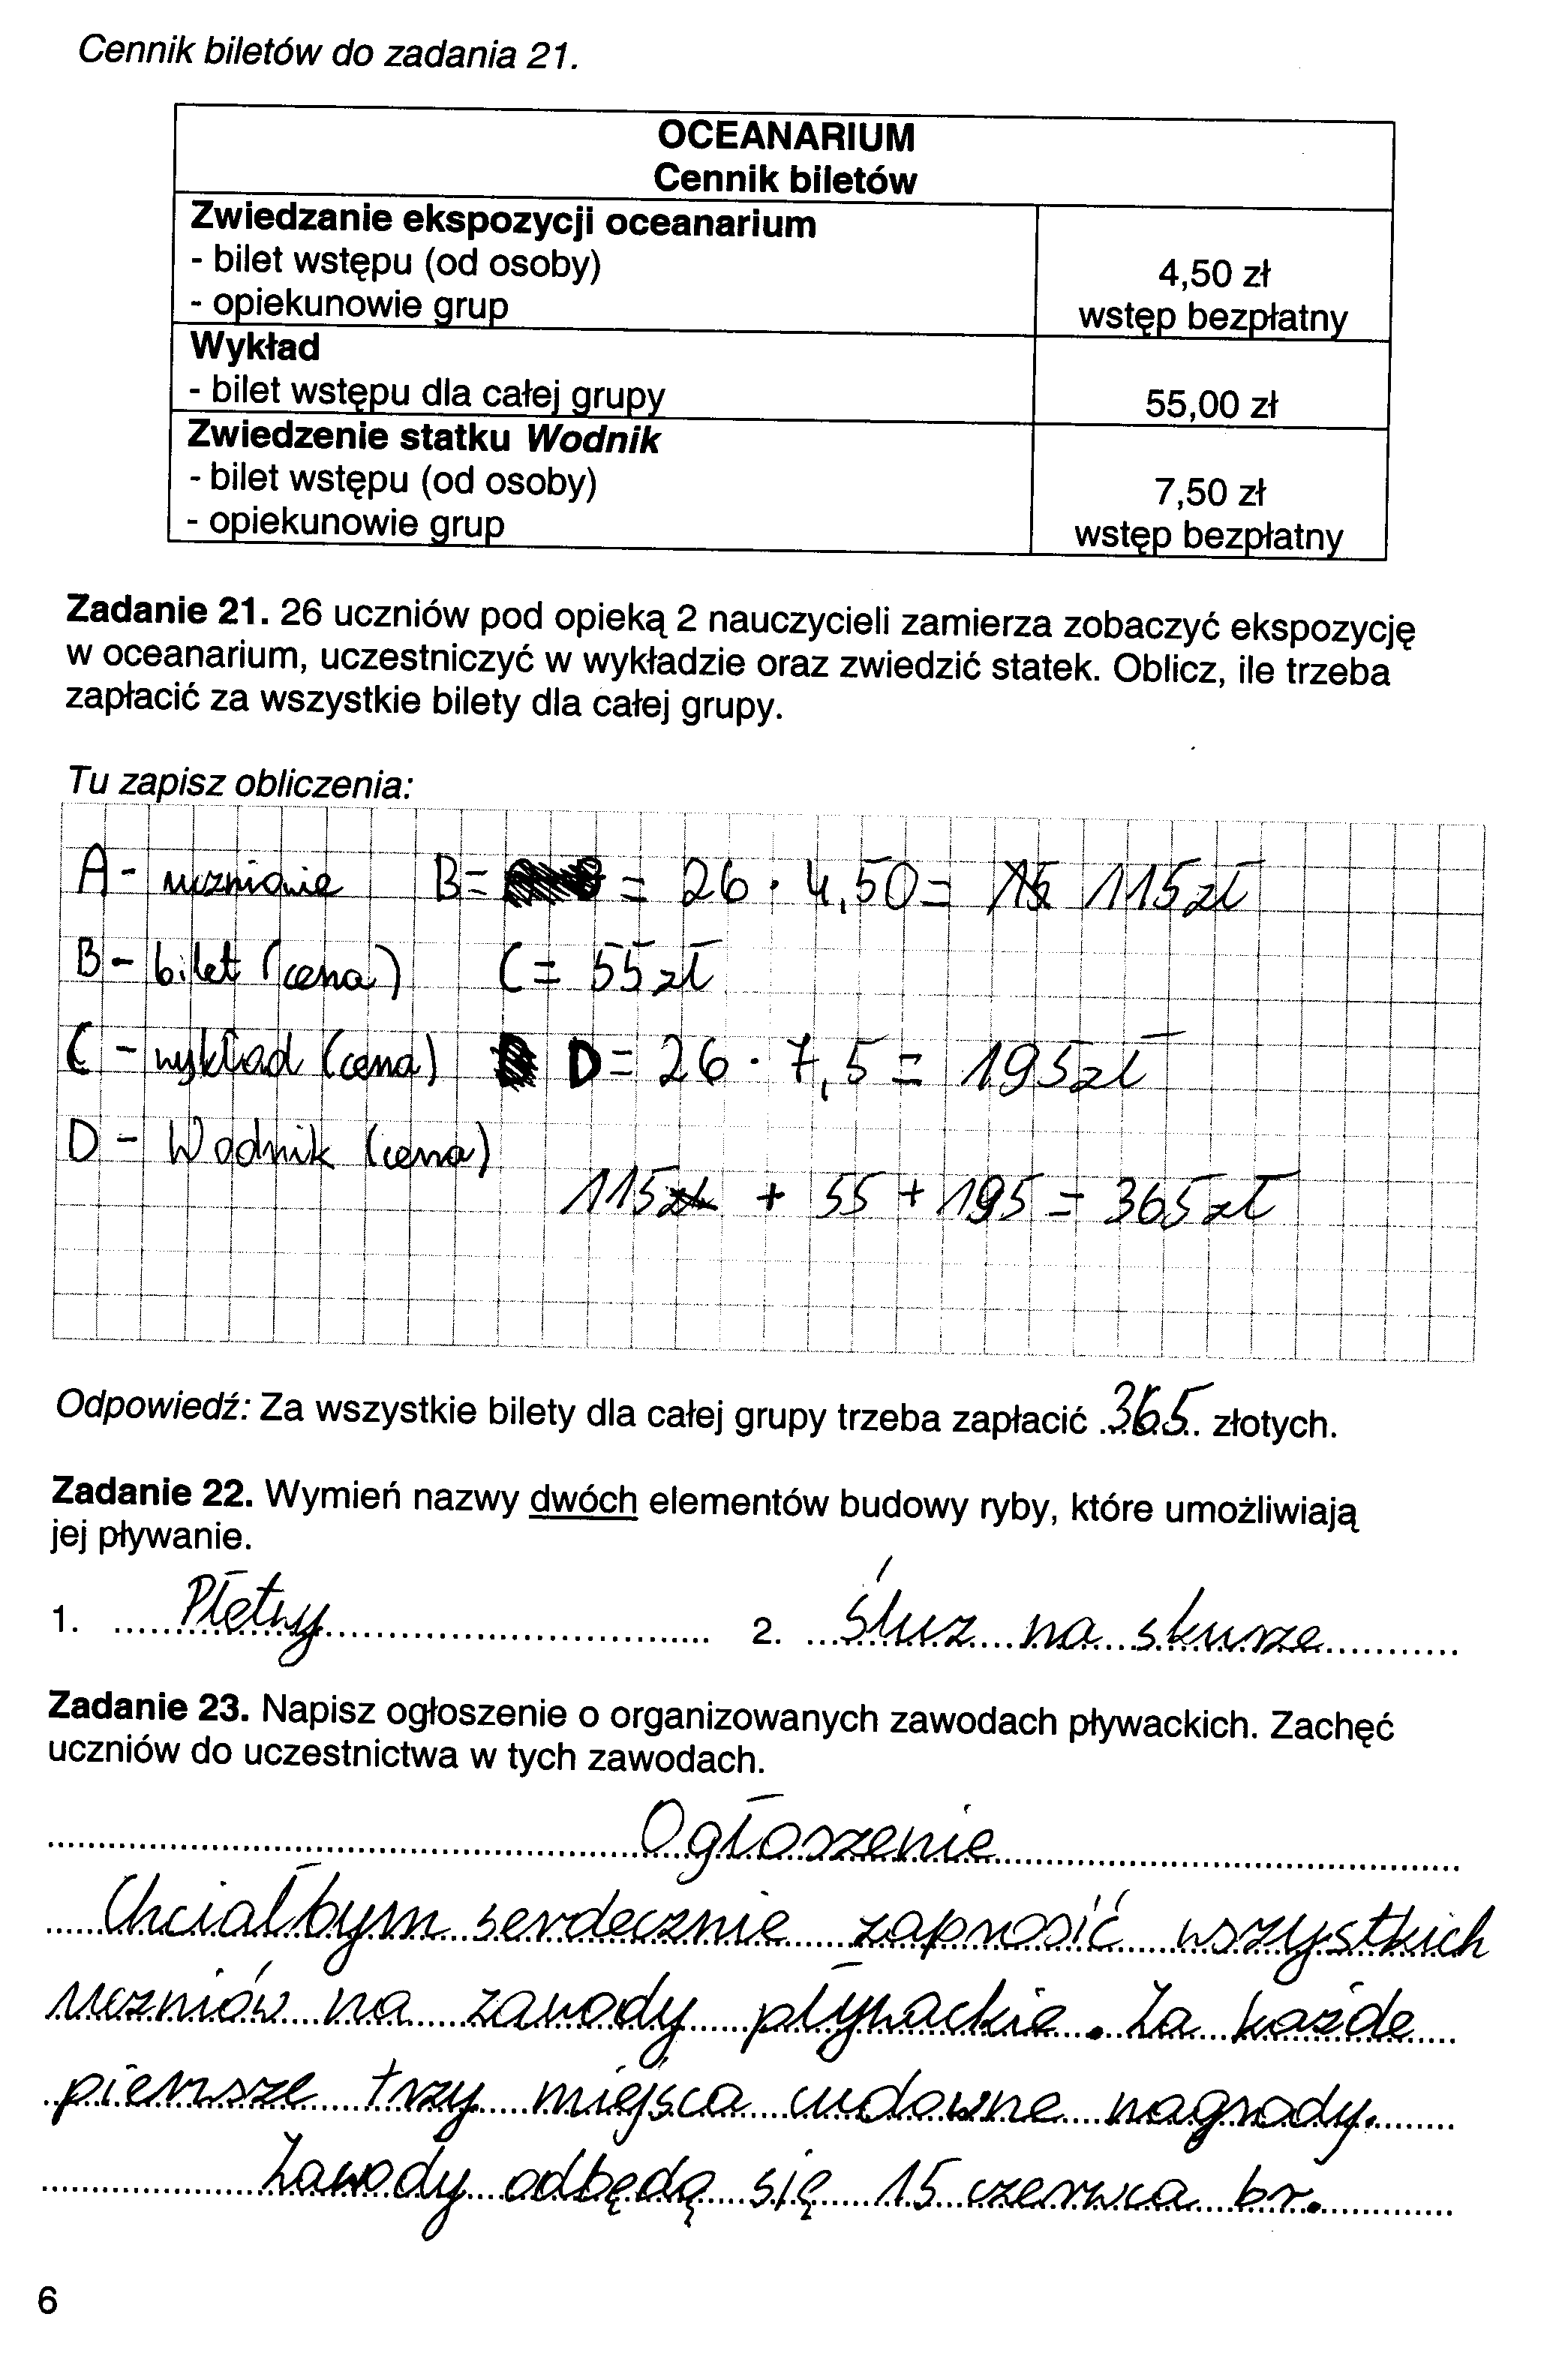 Cennik biletów do zadania 21.
OCEANARIUM
Cennik biletów
Zwiedzanie ekspozycji oceanarium
- bilet wstępu (od osoby) 4,50 zł
- opiekunowie grup wstęp bezpłatny
Wykład
- bilet wstępu dla całej grupy 55,00 zł
Zwiedzenie statku Wodnik
- bilet wstępu (od osoby) 7,50 zł
- opiekunowie grup wstęp bezpłatny
Zadanie 21. 26 uczniów pod opieką 2 nauczycieli zamierza zobaczyć ekspozycję
w oceanarium, uczestniczyć w wykładzie oraz zwiedzić statek. Oblicz, ile trzeba
zapłacić za wszystkie bilety dla całej grupy.
Tu zapisz obliczenia:
A - uczniowie B= = 26 · 4,50= 115zł
B - bilet (cena) C = 55zł
C - wykład (cena) D= 26 · 7,5 = 195zł
D - Wodnik (cena)
115zł + 55 + 195 = 365zł
Odpowiedź: Za wszystkie bilety dla całej grupy trzeba zapłacić .365. złotych.
Zadanie 22. Wymień nazwy dwóch elementów budowy ryby, które umożliwiają
jej pływanie.
1. Płetwy 2. Śluz na skurze
Zadanie 23. Napisz ogłoszenie o organizowanych zawodach pływackich. Zachęć
uczniów do uczestnictwa w tych zawodach.
Ogłoszenie
Chciałbym serdecznie zaprosić wszystkich
uczniów na zawody pływackie. Za każde
pierwsze trzy miejsca cudowne nagrody.
Zawody odbędą się 15 czerwca br.
6